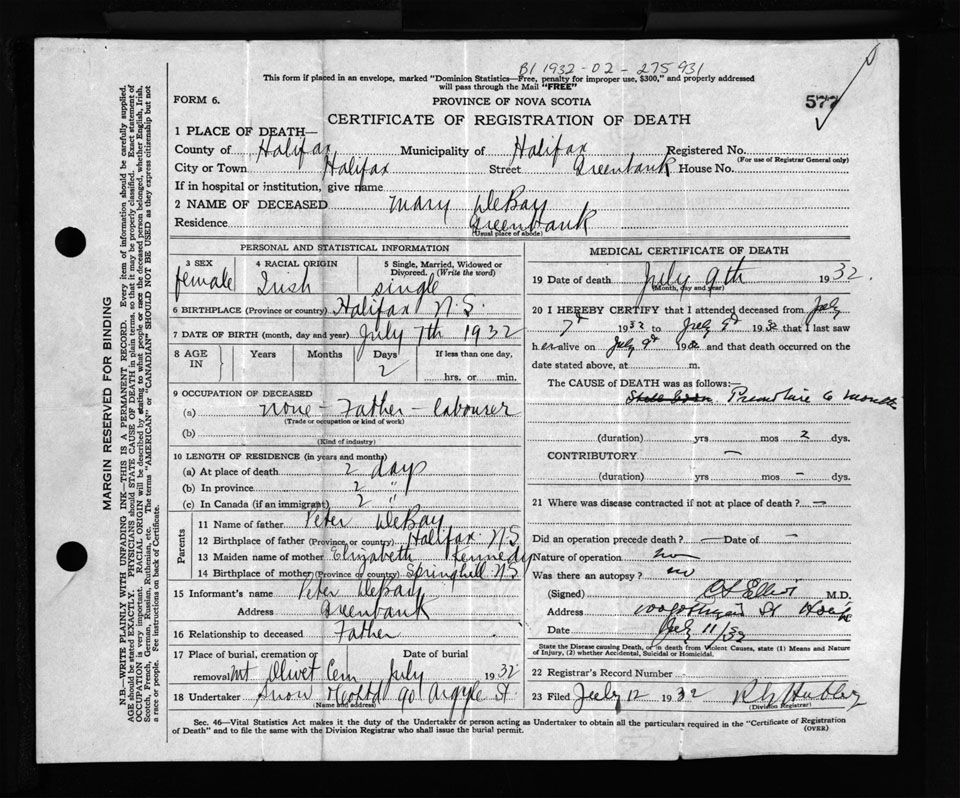 B1 1932-02-275931
This form if placed in an envelope, marked "Dominion Statistics—Free, penalty for improper use, $300," and properly addressed
will pass through the Mail "FREE"
FORM 6.
PROVINCE OF NOVA SCOTIA
577
CERTIFICATE OF REGISTRATION OF DEATH
1 PLACE OF DEATH—
County of Halifax Municipality of Halifax Registered No.
(For use of Registrar General only)
City or Town Halifax Street Greenbank House No.
If in hospital or institution, give name
2 NAME OF DECEASED Mary DeBay
Residence Greenbank
(Usual place of abode)
PERSONAL AND STATISTICAL INFORMATION
3 SEX
female
4 RACIAL ORIGIN
Irish
5 Single, Married, Widowed or
Divorced. (Write the word)
single
6 BIRTHPLACE (Province or country) Halifax N.S.
7 DATE OF BIRTH (month, day and year) July 7th 1932
8 AGE IN
Years Months Days If less than one day,
2
hrs. or min.
9 OCCUPATION OF DECEASED
(a) none - Father - labourer
(Trade or occupation or kind of work)
(b)
(Kind of industry)
10 LENGTH OF RESIDENCE (in years and months)
(a) At place of death 2 days
(b) In province 2 "
(c) In Canada (if an immigrant) 2 "
Parents
11 Name of father Peter DeBay
12 Birthplace of father (Province or country) Halifax N.S
13 Maiden name of mother Elizabeth Kennedy
14 Birthplace of mother (Province or country) Springhill N.S
15 Informant's name Peter DeBay
Address Greenbank
16 Relationship to deceased Father
17 Place of burial, cremation or
removal Mt Olivet Cem
Date of burial
July 1932
18 Undertaker Snow & Co Ltd 90 Argyle St
(Name and address)
MEDICAL CERTIFICATE OF DEATH
19 Date of death July 9th 1932.
(Month, day and year)
20 I HEREBY CERTIFY that I attended deceased from July
7 1932 to July 9 1932 that I last saw
her alive on July 9 1932 and that death occurred on the
date stated above, at m.
The CAUSE OF DEATH was as follows:
Premature 6 months
(duration) yrs mos 2 dys.
CONTRIBUTORY —
(duration) yrs mos - dys.
21 Where was disease contracted if not at place of death? —
Did an operation precede death? — Date of —
Nature of operation no
Was there an autopsy? no
(Signed) Elliot M.D.
Address St
Date July 11/32
State the Disease causing Death, or in death from Violent Causes, state (1) Means and Nature
of Injury, (2) whether Accidental, Suicidal or Homicidal.
22 Registrar's Record Number
23 Filed July 12 1932
(Division Registrar)
Sec. 46—Vital Statistics Act makes it the duty of the Undertaker or person acting as Undertaker to obtain all the particulars required in the "Certificate of Registration
of Death" and to file the same with the Division Registrar who shall issue the burial permit.
(OVER)
MARGIN RESERVED FOR BINDING
N.B.—WRITE PLAINLY WITH UNFADING INK—THIS IS A PERMANENT RECORD. Every item of information should be carefully supplied.
AGE should be stated EXACTLY. PHYSICIANS should STATE CAUSE OF DEATH in plain terms, so that it may be properly classified. Exact statement of
OCCUPATION is very important. RACIAL ORIGIN will be described by stating to what people or race the deceased person belonged, whether English, Irish,
Scotch, French, German, Russian, Ruthenian, etc. The terms "AMERICAN" or "CANADIAN" SHOULD NOT BE USED as they express citizenship but not
a race or people. Fee instructions on back of Certificate.